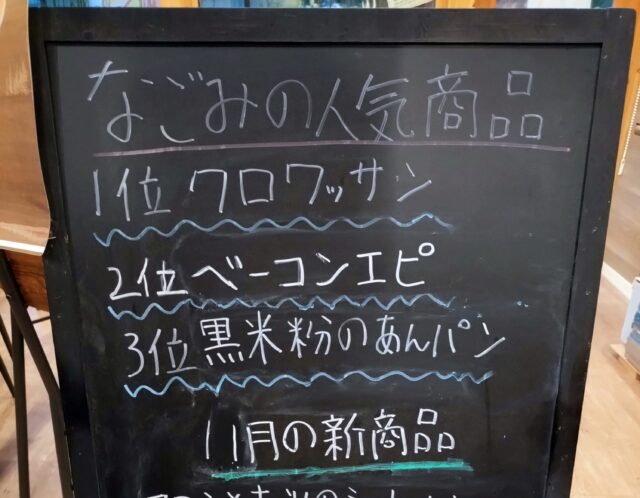 なごみの人気商品
1位 クロワッサン
2位 ベーコンエピ
3位 黒米粉のあんパン
11月の新商品